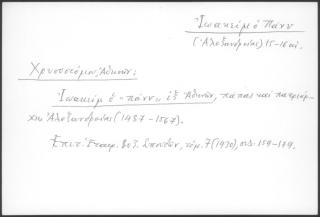 Ἰωακεὶμ ὁ Πάνυ
(Ἀλεξανδρείας) 15-16 αἰ.
Χρυσοστόμου, Ἀθηνῶν:
Ἰωακεὶμ ὁ «πάνυ» ἐξ Ἀθηνῶν, πάπας καὶ πατριάρ-
χης Ἀλεξανδρείας (1487-1567).
Ἐπετ. Ἑταιρ. Βυζ. Σπουδῶν, τόμ. 7 (1930), σελ. 159-179.